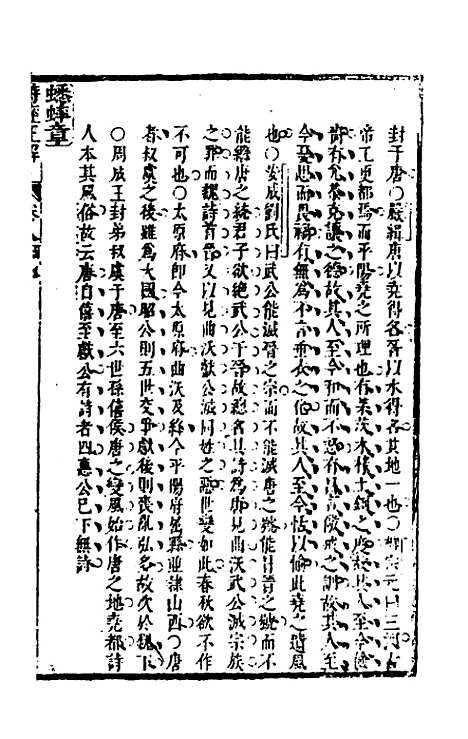 封于唐○嚴緝唐以堯得名晉以水得名其地一也○朝 元曰三河古
帝王更都焉而平陽堯之所理也有茅茨木 土 之度故其人至今儉
嗇有允恭克讓之德故其人至今和而不怨有 之訓故其人至
今憂思而畏禍有無為不言垂衣之化故其人至今恬以愉此堯之遺風
也○安成劉氏曰武公能滅晉之宗而不能滅唐之號能 晉之號而不
能繼唐之統君子欲絶武公于晉故總名其詩為唐見曲沃武公滅宗族
之罪而魏詩首晉又以見曲沃獻公滅同姓之惡世變如此春秋欲不作
不可也○太原府卽今太原府曲沃及絳今平陽府 縣並隷山西○唐
者叔虞之後雖為大國昭公則五世交爭獻後則喪亂弘多故次於魏下
○周成王封弟叔虞于唐至六世孫僖侯唐之變風始作唐之地堯都詩
人本其風俗故云唐自僖至獻公有詩者四惠公已下無詩
蟋蟀章
詩經正解